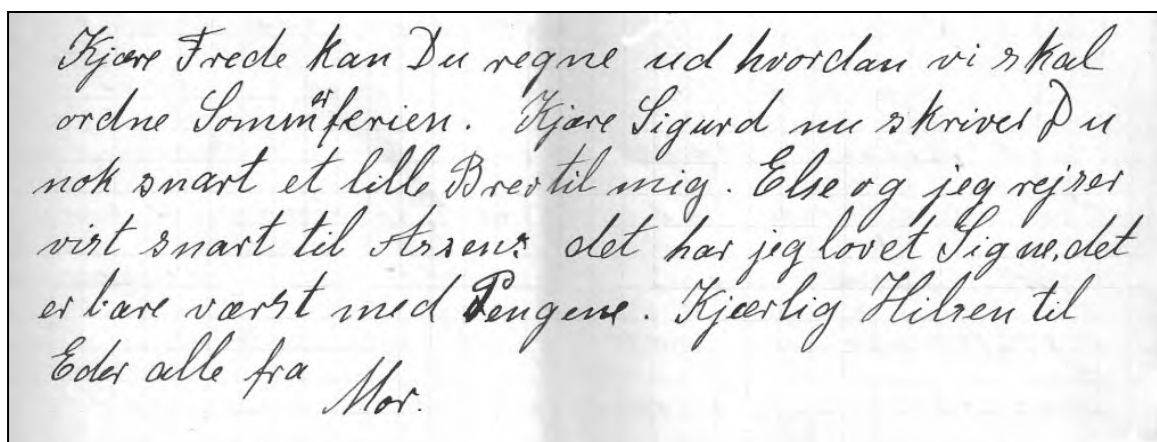 Kjære Frede kan Du regne ud hvordan vi skal
ordne Sommerferien. Kjære Sigurd nu skriver Du
nok snart et lille Brev til mig. Else og jeg rejser
vist snart til Assens det har jeg lovet Signe, det
er bare værst med Pengene. Kjærlig Hilsen til
Eder alle fra
Mor.